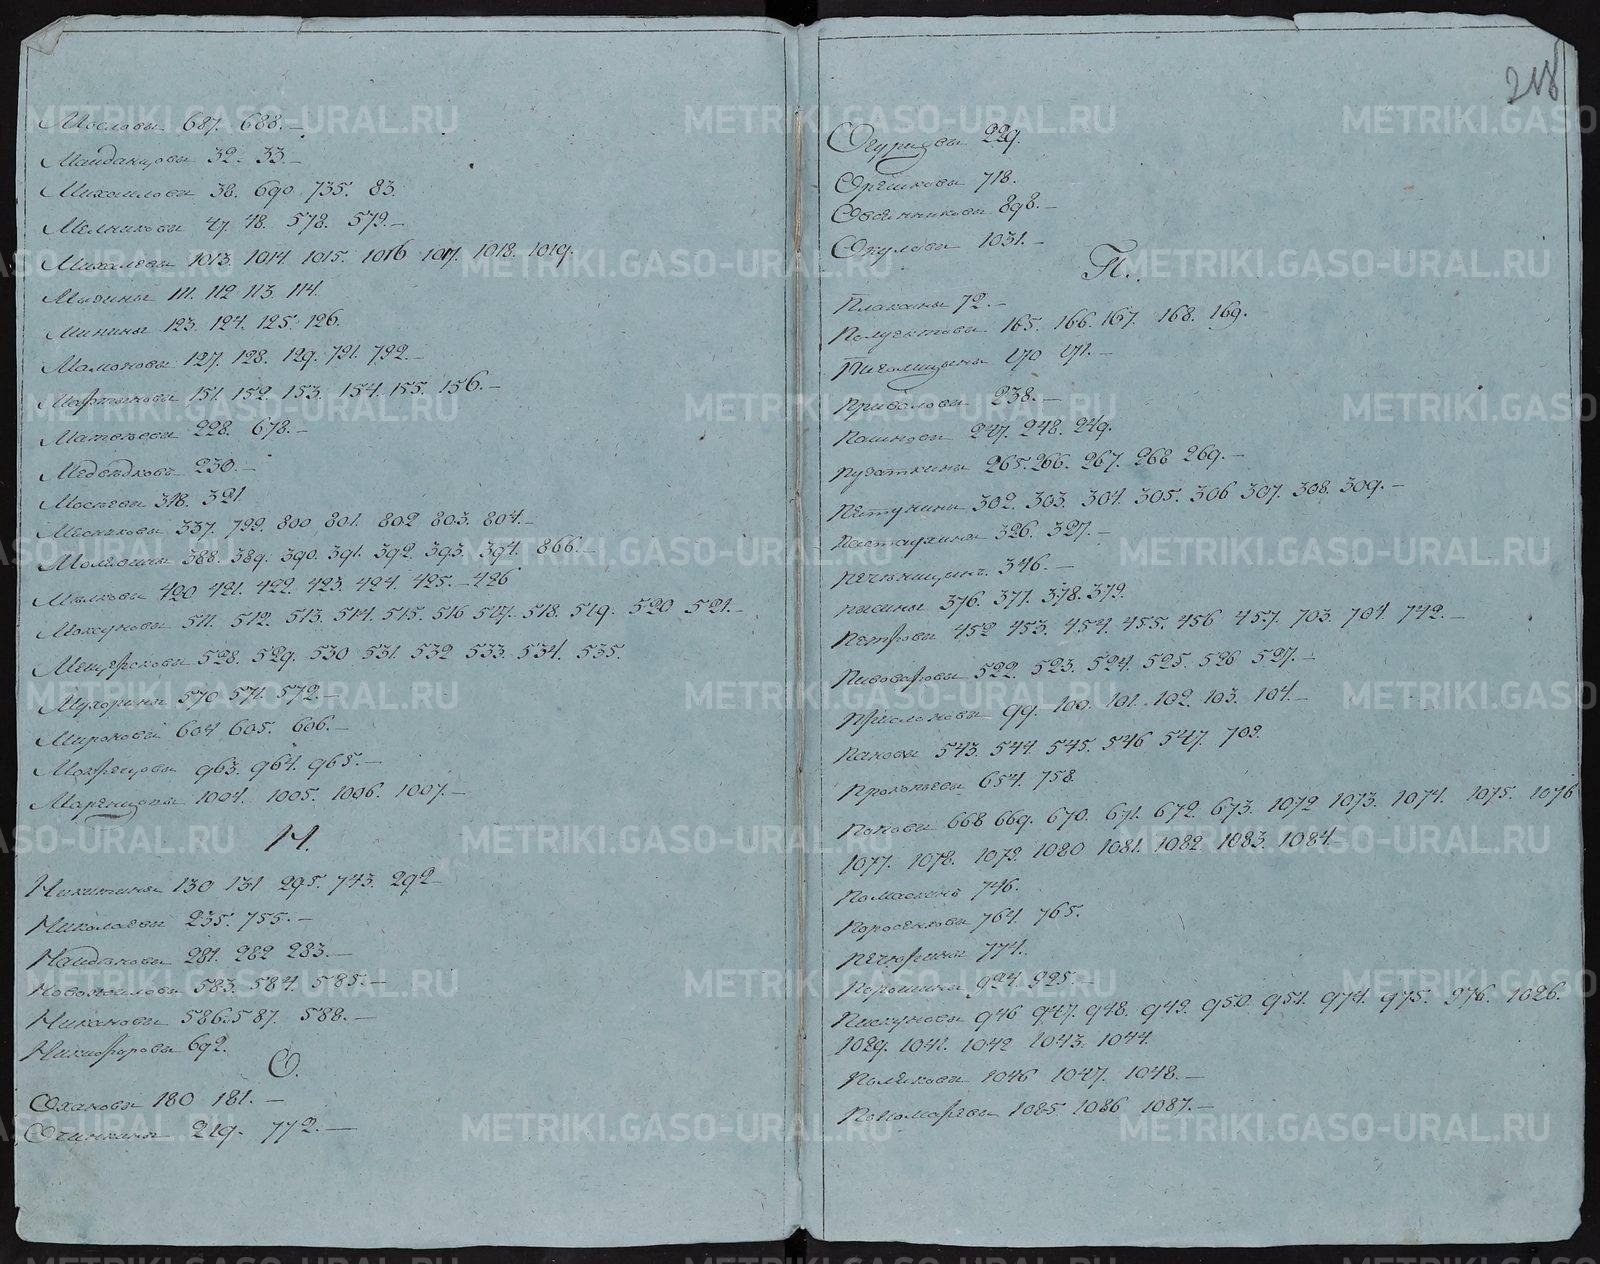 Масловы 687. 688.—
Майданцовы 32. 33.—
Михаиловы 38. 690 735. 83.
Мелниковы 47. 48. 578. 579.—
Михалевы 1013. 1014. 1015. 1016 1017. 1018. 1019.
111. 112 113. 114.
Минины 123. 124. 125. 126.
Мамоновы 127. 128. 129. 791. 792.—
Мартыновы 151. 152. 153. 154. 155. 156.—
Матвѣевы 228. 678.—
Медвѣдковъ 230.—
318. 321.
Месниковы 337. 799. 800 801. 802 803. 804.—
388. 389. 390. 391. 392 393. 394. 866.—
Мѣлковы 420 421. 422. 423. 424. 425.—426
Моксуновы 511. 512. 513. 514. 515. 516 517. 518. 519. 520 521.—
Мещерсковы 528. 529. 530 531. 532 533. 534. 535.
Мухорины 570 571. 572.—
Мироновы 604 605. 606.—
963. 964. 965.—
1004. 1005. 1006. 1007.—
Н.
Никитины 130 131 295. 743. 292
Николаевы 235. 755.—
Найденовы 281. 282 283.—
Новожиловы 583. 584. 585.—
Никоновы 586. 587. 588.—
Никифоровы 692.
О.
Охановы 180 181.—
Очинкины 219. 772.—
218
Огурцовы 229.
Орѣшковы 718.
Овсянниковы 898.—
Окуловы 1031.—
П.
Плахины 72.—
Полуектовы 165. 166. 167. 168. 169.
Пигалицыны 170 171.—
Приваловы 238.—
Пашковы 247. 248. 249.
Пузаткины 265. 266. 267. 268 269.—
Петунины 302. 303. 304. 305. 306 307. 308. 309.—
Пастухины 326. 327.—
346.—
376. 377. 378. 379.
Петровы 452 453. 454. 455. 456 457. 703. 704. 742.—
Пивоваровы 522. 523. 524. 525. 526 527.—
99. 100. 101. 102. 103. 104.—
Пановы 543. 544. 545. 546 547. 709.
Прокопьевы 654. 758.
Поповы 668 669. 670. 671. 672. 673. 1072 1073. 1074. 1075. 1076
1077. 1078. 1079. 1080 1081. 1082 1083. 1084.
Помаскинъ 746.
Поросенковы 764. 765.
Печорины 774.
Порошины 924. 925.—
Пискуновы 946 947. 948. 949. 950. 951. 974. 975. 976. 1026.
1029. 1041. 1042 1043. 1044.
Поляковы 1046 1047. 1048.—
Пономаревы 1085. 1086 1087.—